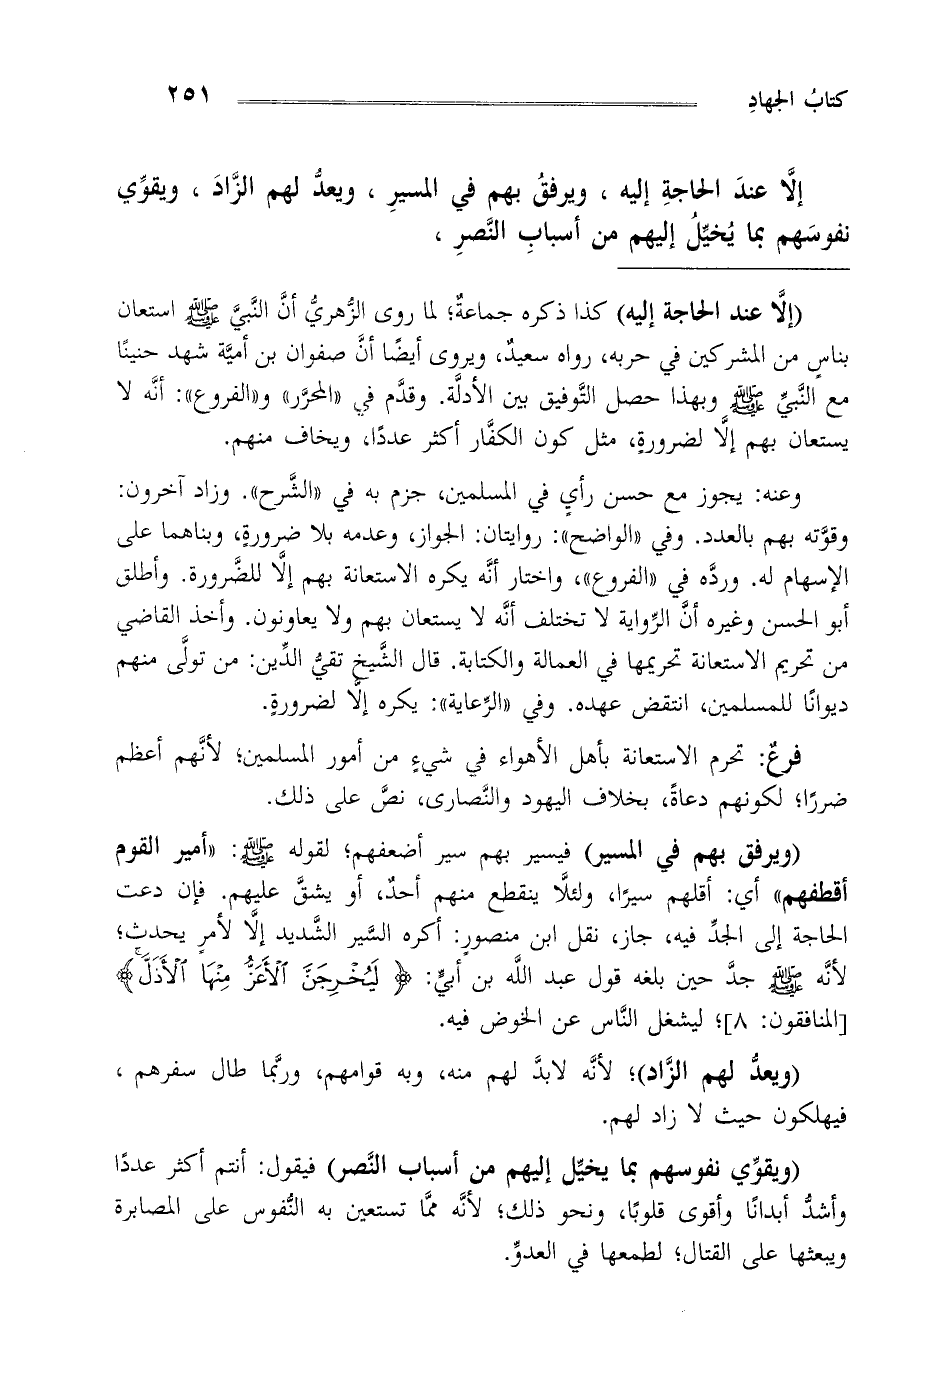 كتابُ الجهادِ ٢٥١
إلَّا عندَ الحاجةِ إليه ، ويرفقُ بهم في المسيرِ ، ويعدُّ لهم الزَّادَ ، ويقوِّي
نفوسَهم بما يُخيِّلُ إليهم من أسبابِ النَّصرِ ،
(إلَّا عند الحاجة إليه) كذا ذكره جماعةٌ؛ لما روى الزُّهريُّ أنَّ النَّبيَّ ﷺ استعان
بناسٍ من المشركين في حربه، رواه سعيدٌ، ويروى أيضًا أنَّ صفوان بن أميَّة شهد حنينًا
مع النَّبيِّ ﷺ وبهذا حصل التَّوفيق بين الأدلَّة. وقدَّم في «المحرَّر» و«الفروع»: أنَّه لا
يستعان بهم إلَّا لضرورةٍ، مثل كون الكفَّار أكثر عددًا، ويخاف منهم.
وعنه: يجوز مع حسن رأيٍ في المسلمين، جزم به في «الشَّرح». وزاد آخرون:
وقوَّته بهم بالعدد. وفي «الواضح»: روايتان: الجواز، وعدمه بلا ضرورةٍ، وبناهما على
الإسهام له. وردَّه في «الفروع»، واختار أنَّه يكره الاستعانة بهم إلَّا للضَّرورة. وأطلق
أبو الحسن وغيره أنَّ الرِّواية لا تختلف أنَّه لا يستعان بهم ولا يعاونون. وأخذ القاضي
من تحريم الاستعانة تحريمها في العمالة والكتابة. قال الشَّيخ تقيُّ الدِّين: من تولَّى منهم
ديوانًا للمسلمين، انتقض عهده. وفي «الرِّعاية»: يكره إلَّا لضرورةٍ.
فرعٌ: تحرم الاستعانة بأهل الأهواء في شيءٍ من أمور المسلمين؛ لأنَّهم أعظم
ضررًا؛ لكونهم دعاةً، بخلاف اليهود والنَّصارى، نصَّ على ذلك.
(ويرفق بهم في المسير) فيسير بهم سير أضعفهم؛ لقوله ﷺ: «أمير القوم
أقطفهم» أي: أقلهم سيرًا، ولئلَّا ينقطع منهم أحدٌ، أو يشقَّ عليهم. فإن دعت
الحاجة إلى الجدِّ فيه، جاز، نقل ابن منصورٍ: أكره السَّير الشَّديد إلَّا لأمرٍ يحدث؛
لأنَّه ﷺ جدَّ حين بلغه قول عبد اللَّه بن أبيٍّ: ﴿لَيُخْرِجَنَّ ٱلْأَعَزُّ مِنْهَا ٱلْأَذَلَّۚ﴾
[المنافقون: ٨]؛ ليشغل النَّاس عن الخوض فيه.
(ويعدُّ لهم الزَّاد)؛ لأنَّه لابدَّ لهم منه، وبه قوامهم، وربَّما طال سفرهم ،
فيهلكون حيث لا زاد لهم.
(ويقوِّي نفوسهم بما يخيِّل إليهم من أسباب النَّصر) فيقول: أنتم أكثر عددًا
وأشدُّ أبدانًا وأقوى قلوبًا، ونحو ذلك؛ لأنَّه ممَّا تستعين به النُّفوس على المصابرة
ويبعثها على القتال؛ لطمعها في العدوِّ.